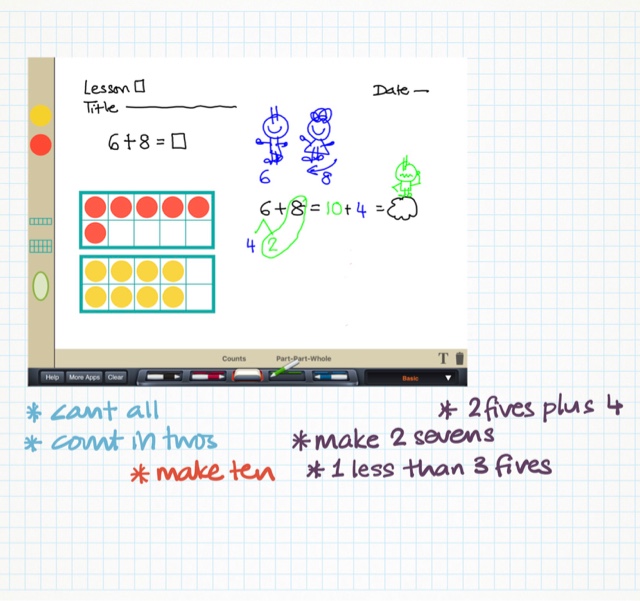 Lesson □
Title
Date
6+8=□
6 8
6+8=10+4=
4 2
Counts Part-Part-Whole T
Help More Apps Clear Basic
* cant all
* count in twos
* make ten
* 2 fives plus 4
* make 2 sevens
* 1 less than 3 fives